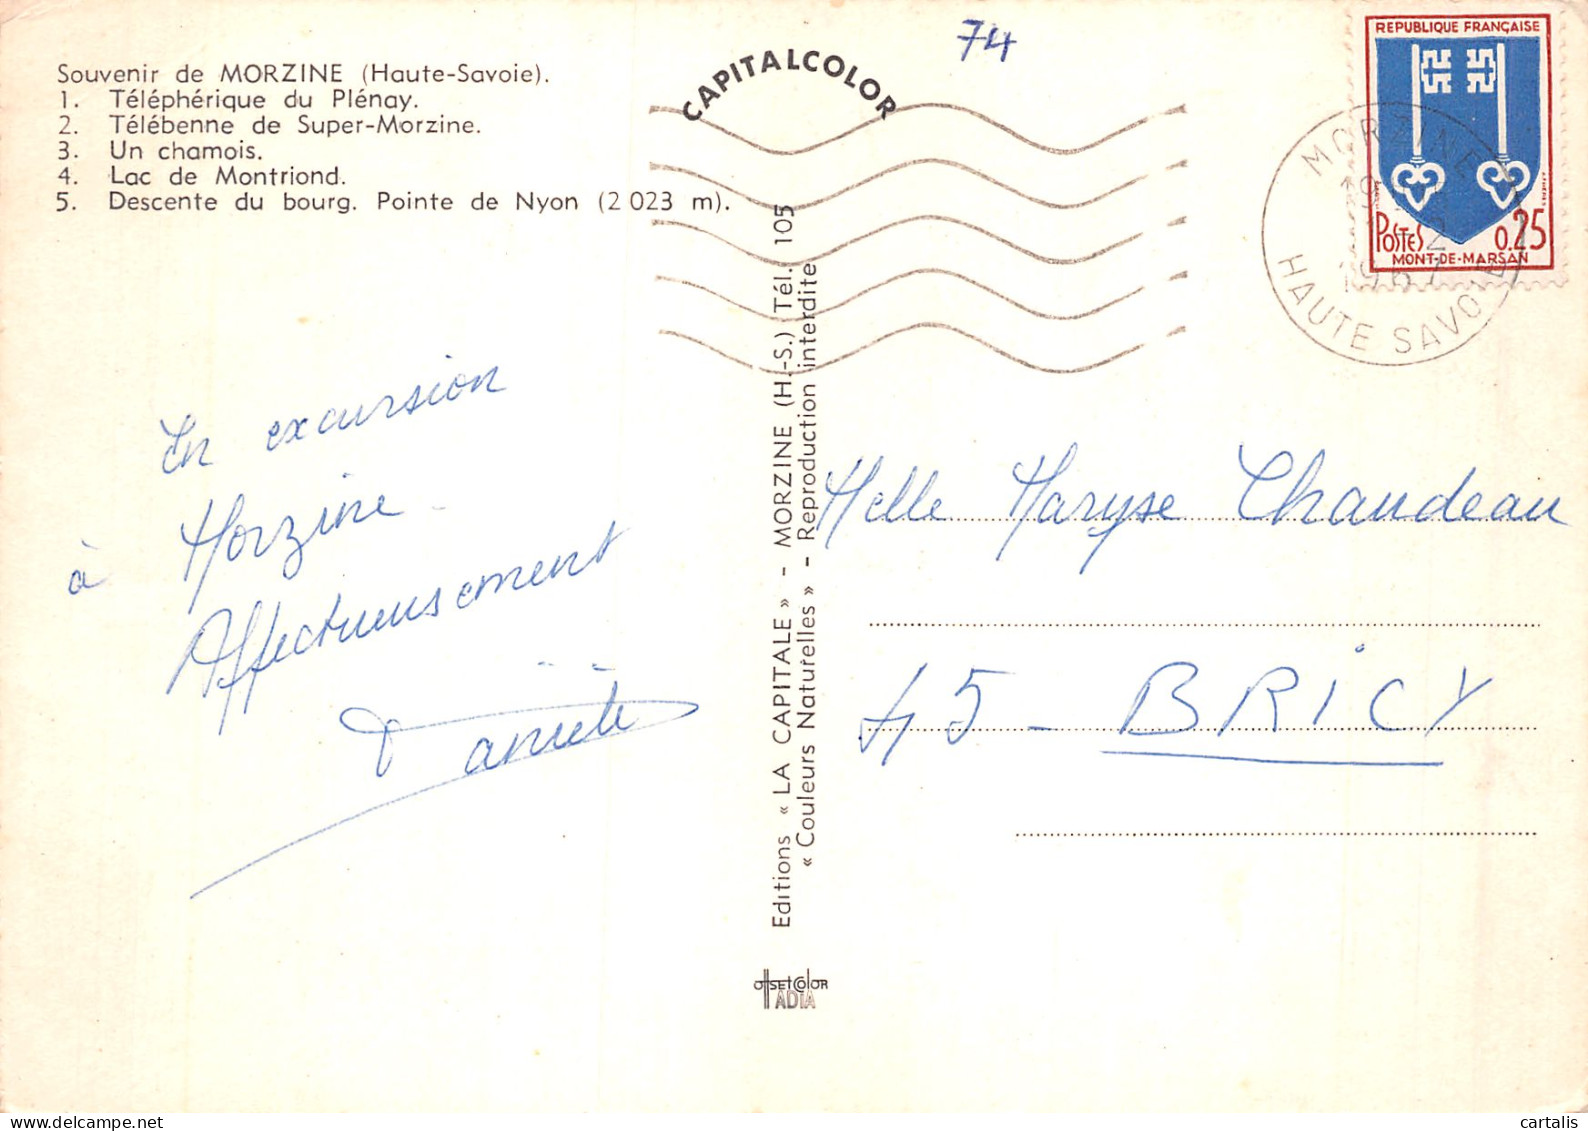 Souvenir de MORZINE (Haute-Savoie).
1. Téléphérique du Plénay.
2. Télébenne de Super-Morzine.
3. Un chamois.
4. Lac de Montriond.
5. Descente du bourg. Pointe de Nyon (2 023 m).
CAPITALCOLOR
74
REPUBLIQUE FRANÇAISE
POSTES 0.25
MONT-DE-MARSAN
MORZINE
19
2
1967
HAUTE SAVOIE
En excursion
à Morzine
Affectueusement
Danièle
Editions « LA CAPITALE » - MORZINE (H.-S.) Tél. 105
« Couleurs Naturelles » - Reproduction interdite
Melle Maryse Chaudeau
45 - BRICY
OFFSETCOLOR
ADIA
cartalis